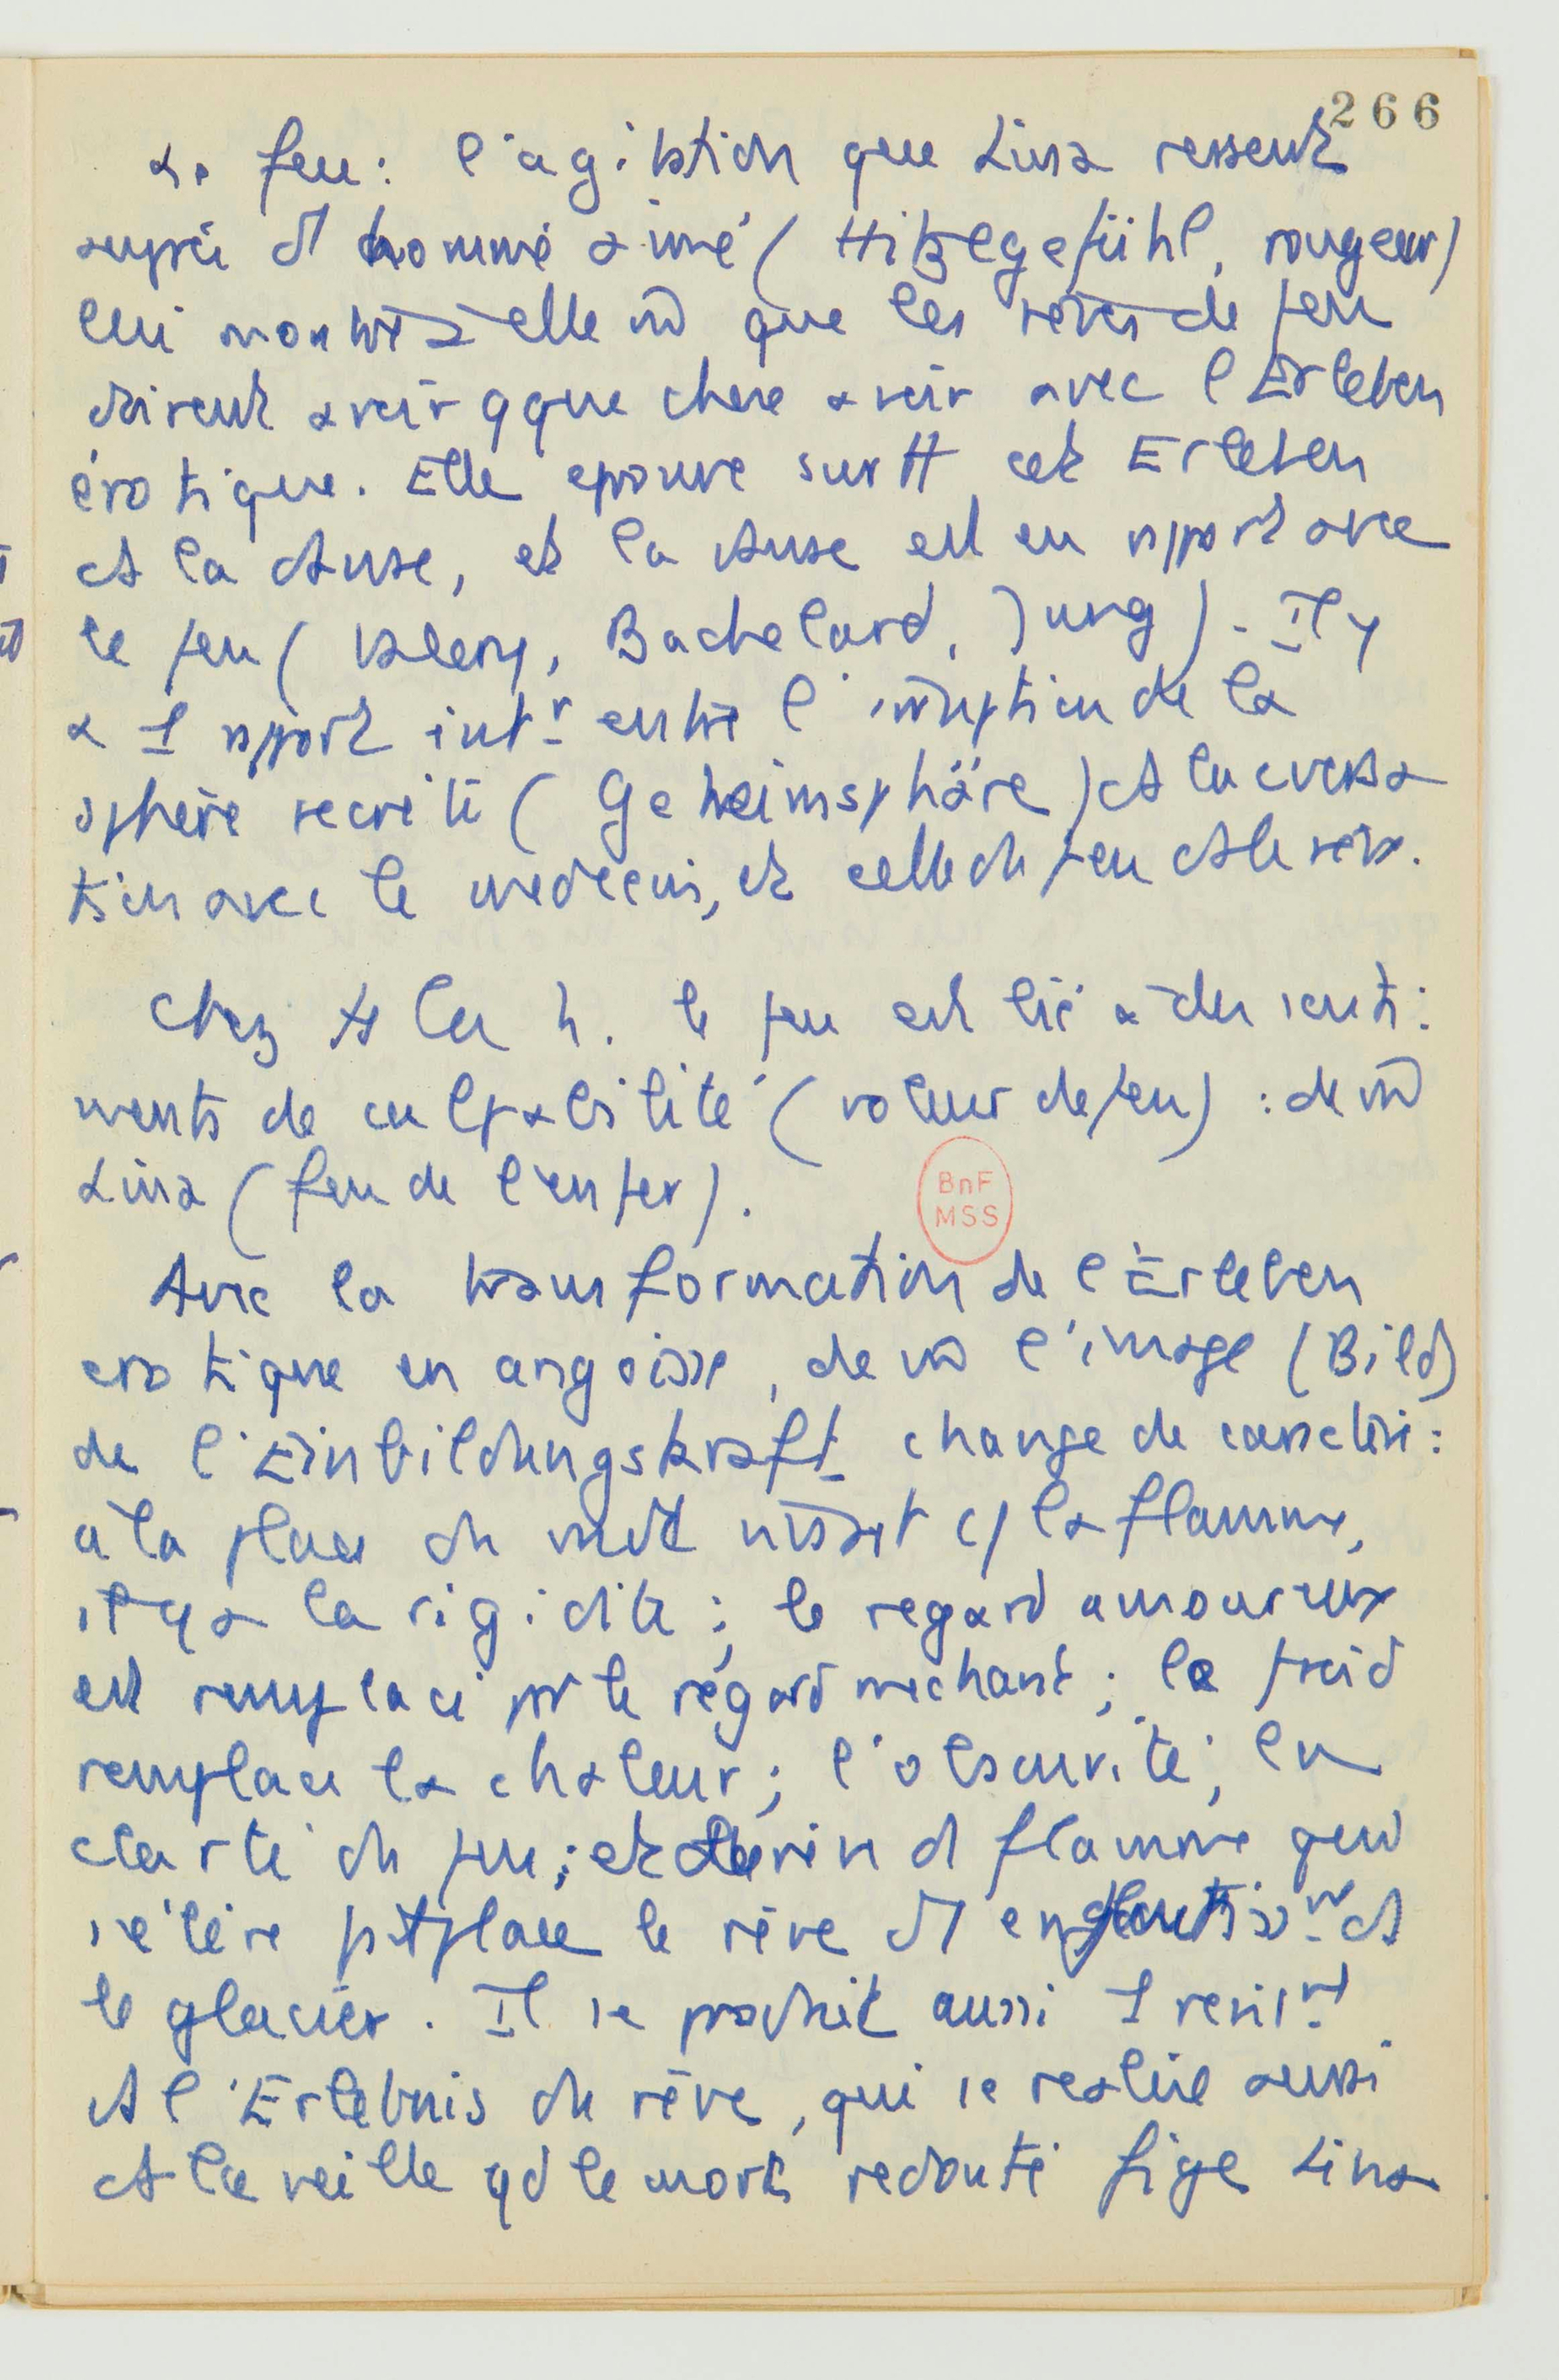 266
Le feu : l'agitation que Lina ressent
auprès d'1 homme aimé (Hitzegefühl, rougeur)
lui montre à elle m̄ que les rêves de feu
doivent avoir qque chose à voir avec l'Erleben
érotique. Elle éprouve surtt cet Erleben
ds la danse, et la danse est en rapport avec
le feu (Valery, Bachelard, Jung). Il y
a 1 rapport intr entre l'irruption de la
sphère secrète (Geheimsphäre) ds la conversa
tion avec le médecin, et celle du feu ds le rêve.
Chez ts les h. le feu est lié à des senti:
ments de culpabilité (voleur de feu) : de m̄
Lina (feu de l'enfer).
Avec la transformation de l'Erleben
erotique en angoisse, de m̄ l'image (Bild)
de l'Einbildungskraft change de caractère :
à la place du cpt la flamme,
il y a la rigidité ; le regard amoureux
est remplacé par le regard méchant ; le froid
remplace la chaleur ; l'obscurité, la
clarté du feu ; et de flamme qui
s'élève fait place le rêve d'1 engloutisst ds
le glacier. Il se produit aussi 1
ds l'Erlebnis du rêve, qui se réalise aussi
ds la veille qd le mort redouté fige Lina
BnF
MSS